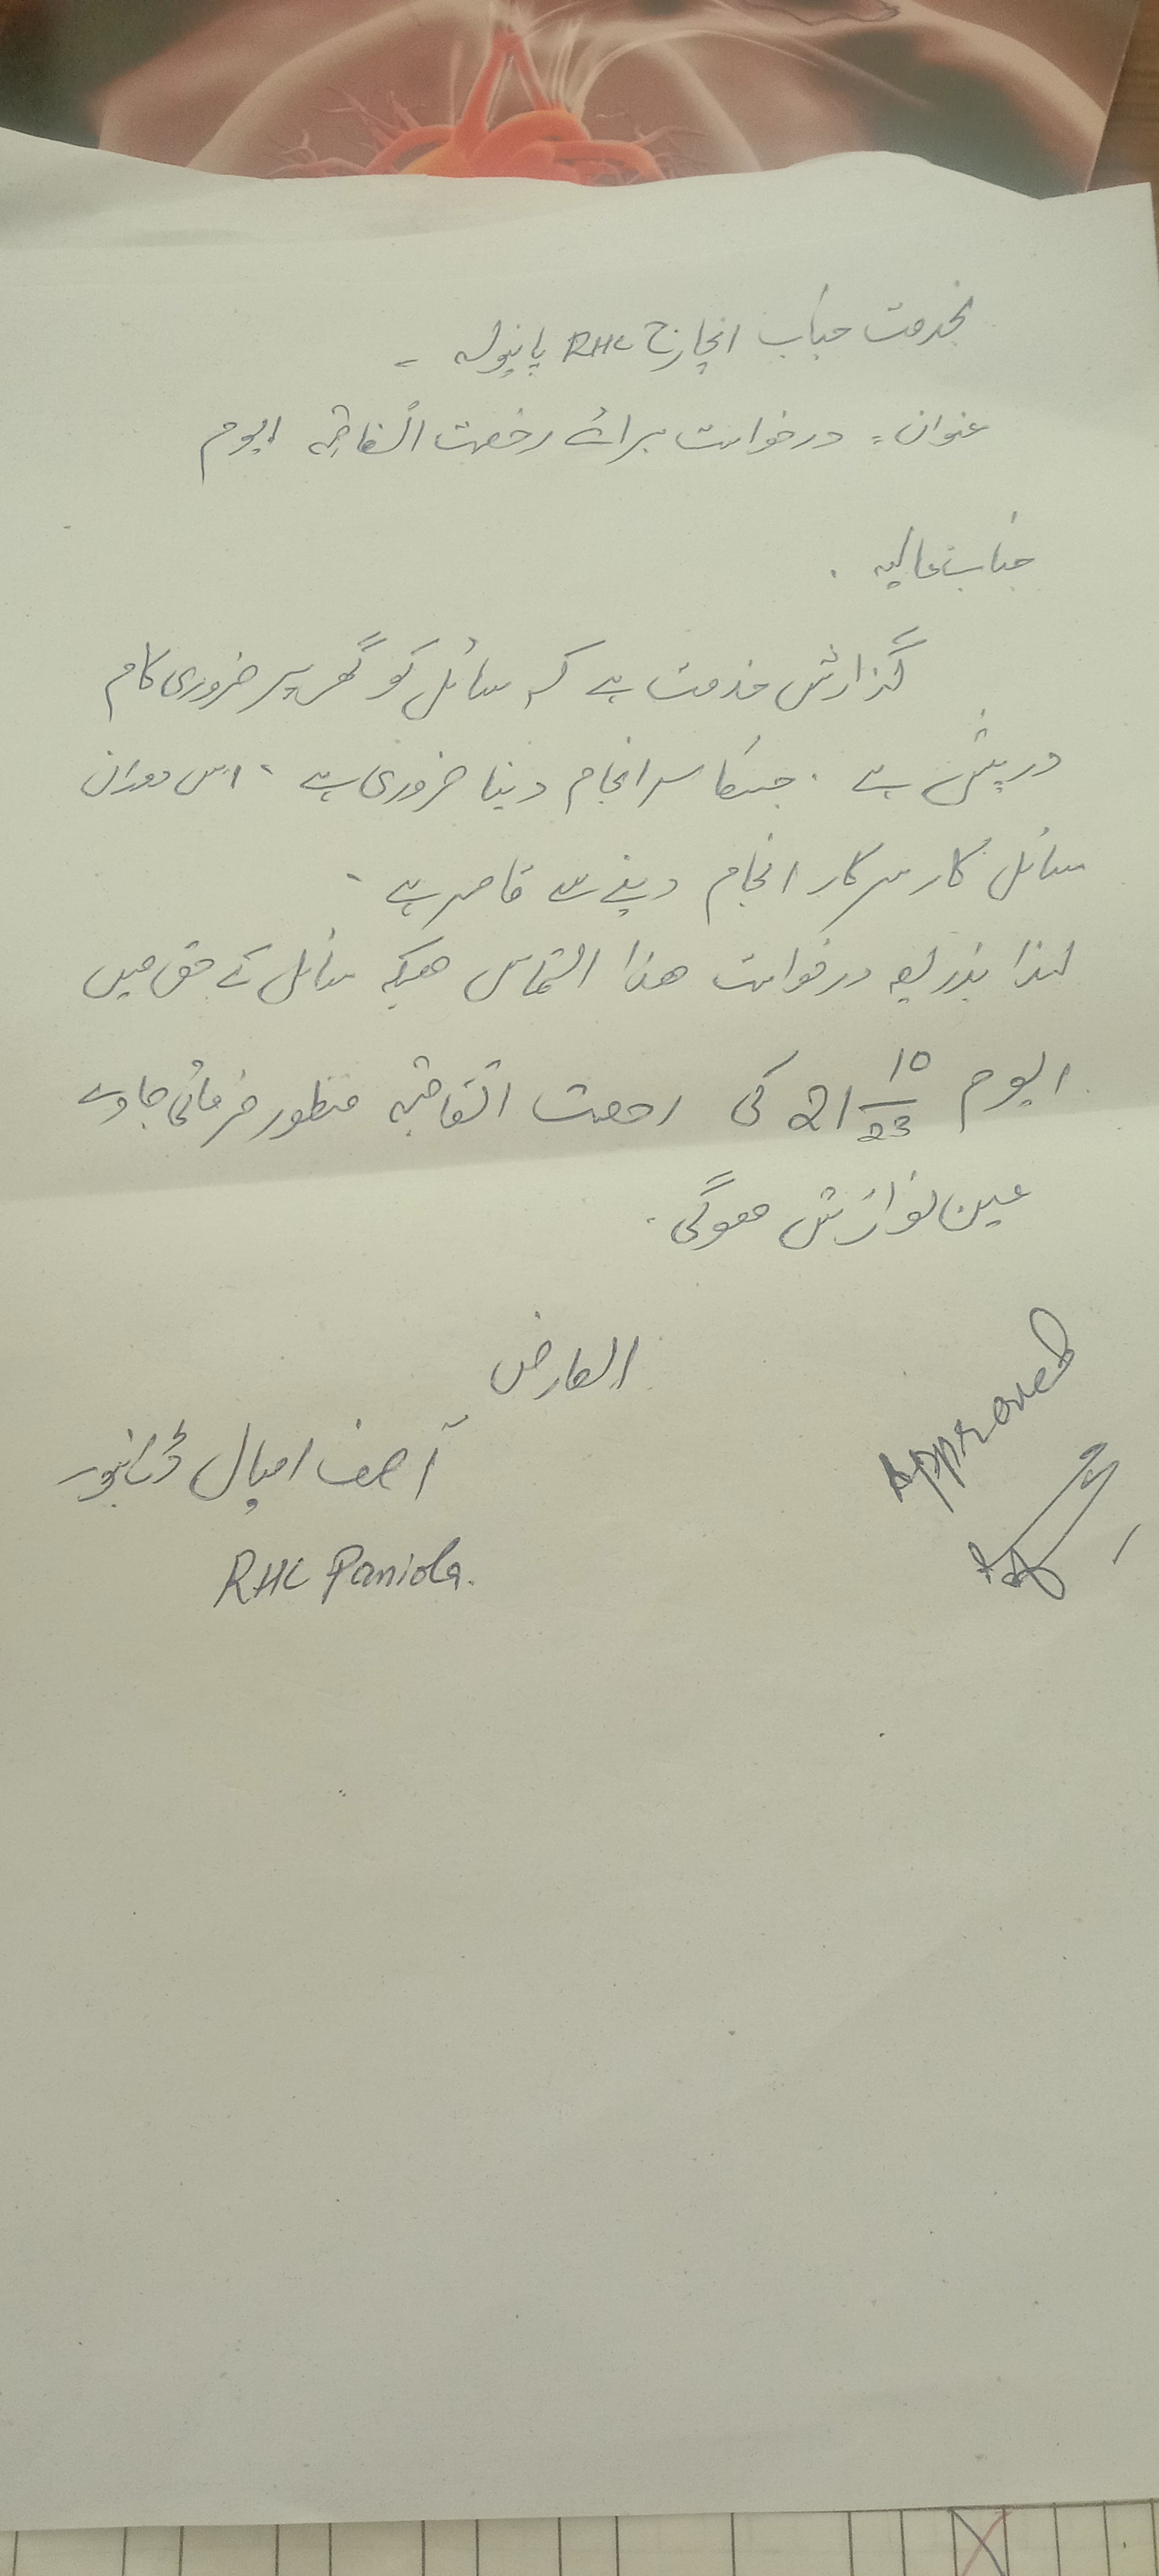 بخدمت جناب انچارج RHC پانیولہ ۔
عنوان = درخواست برائے رخصت اتفاقیہ 1یوم
جناب عالیہ ۔
گذارش خدمت ہے کہ سائل کو گھر پر ضروری کام
درپیش ہے ۔ جسکا سرانجام دینا ضروری ہے ۔ اس دوران
سائل کار سرکار انجام دینے سے قاصر ہے ۔
لہذا بذریعہ درخواست ھذا التماس ھیکہ سائل کے حق میں
1یوم 21 10/23 کی رخصت اتفاقیہ منظور فرمائی جاوے
عین نوازش ھوگی ۔
العارض
آصف اقبال ڈرائیور
RHC Paniola.
Approved